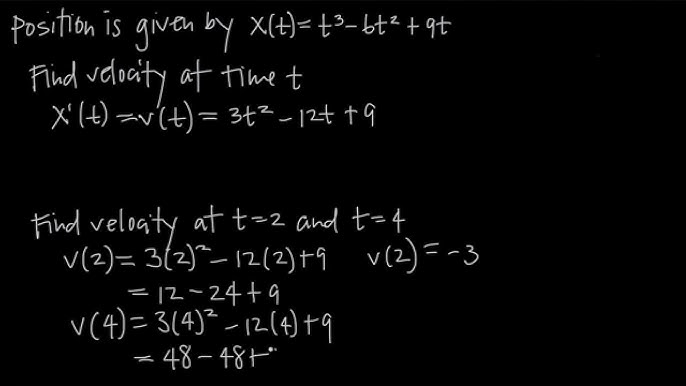 Position is given by x(t)=t³-6t²+9t
Find velocity at time t
x'(t)=v(t)=3t²-12t+9
Find velocity at t=2 and t=4
v(2)=3(2)²-12(2)+9 v(2)=-3
=12-24+9
v(4)=3(4)²-12(4)+9
=48-48+